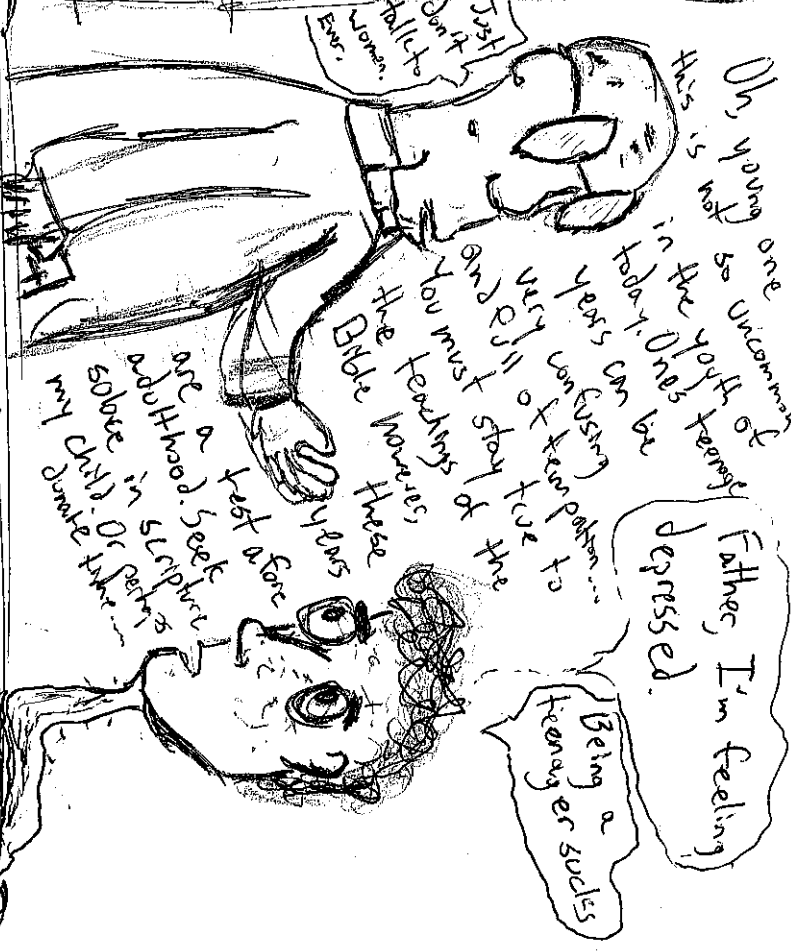 Father, I'm feeling
depressed.
Being a
teenager sucks
Oh, young one
this is not so uncommon
in the youth of
today. Ones teenage
years can be
very confusing
and full of tempation...
You must stay true to
the teachings of the
Bible however, these
years
are a test afore
adulthood. Seek
solace in scripture
my child. Or perhaps
donate time...
Just
don't
talk to
women.
Ever.